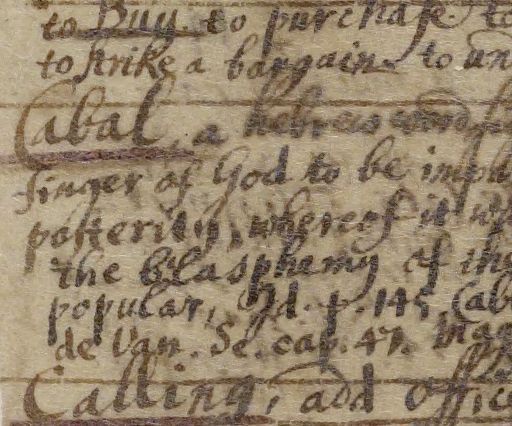 to Buy to purchase. to
to strike a bargain. to un
Cabal, a hebrew word
finger of God to be impl
posterity, whereof it w
the blasphemy of the
popular, Id. p. 145. Cab
de Van. Sc. cap. 47. Mag
Calling, add offic